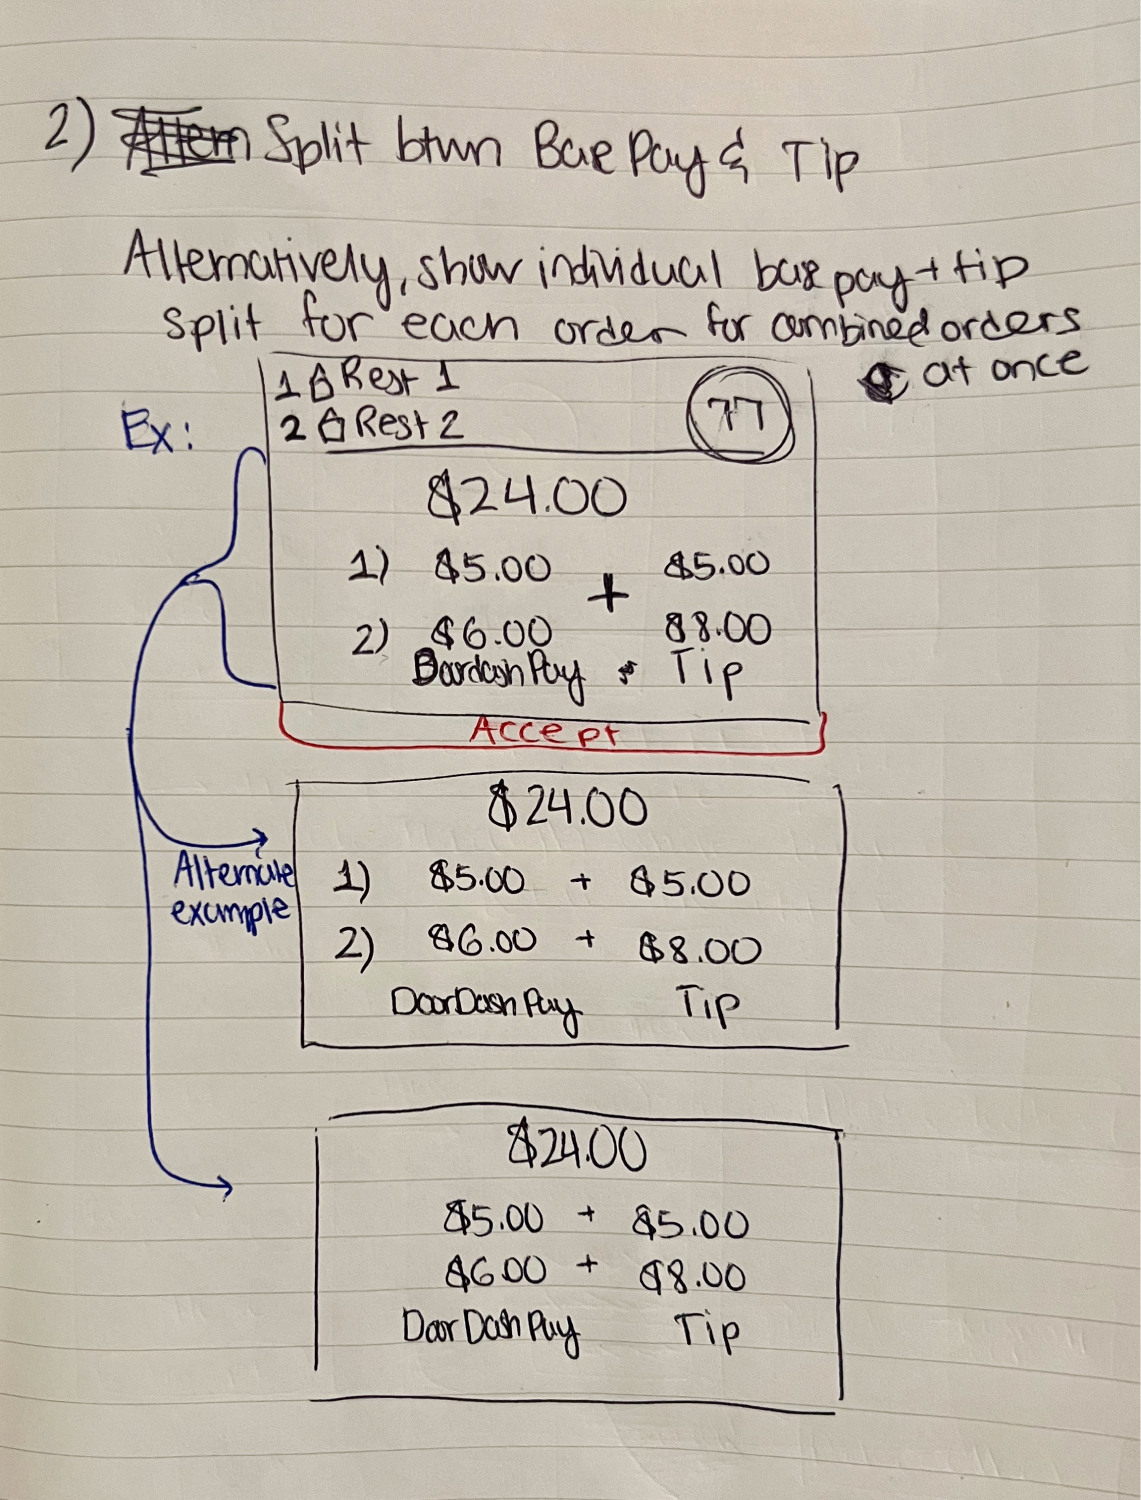 2) Split btwn Base Pay & Tip
Alternatively, show individual base pay + tip
split for each order for combined orders
at once
Ex:
1 Rest 1
2 Rest 2
77
$24.00
1) $5.00 + $5.00
2) $6.00 $8.00
Doordash Pay Tip
Accept
Alternate
example
$24.00
1) $5.00 + $5.00
2) $6.00 + $8.00
DoorDash Pay Tip
$24.00
$5.00 + $5.00
$6.00 + $8.00
DoorDash Pay Tip